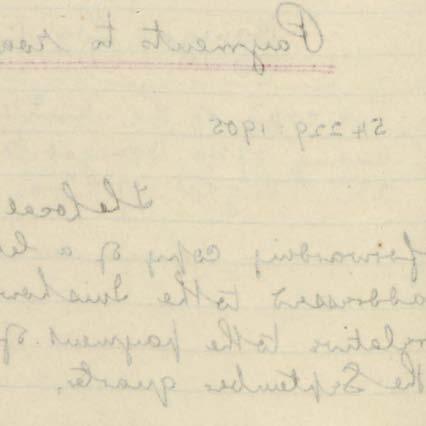 Payments to road
54229/1905
The Local
forwarding copy of a le
addressed to the Inishow
relative to the payment of
the September quarter.